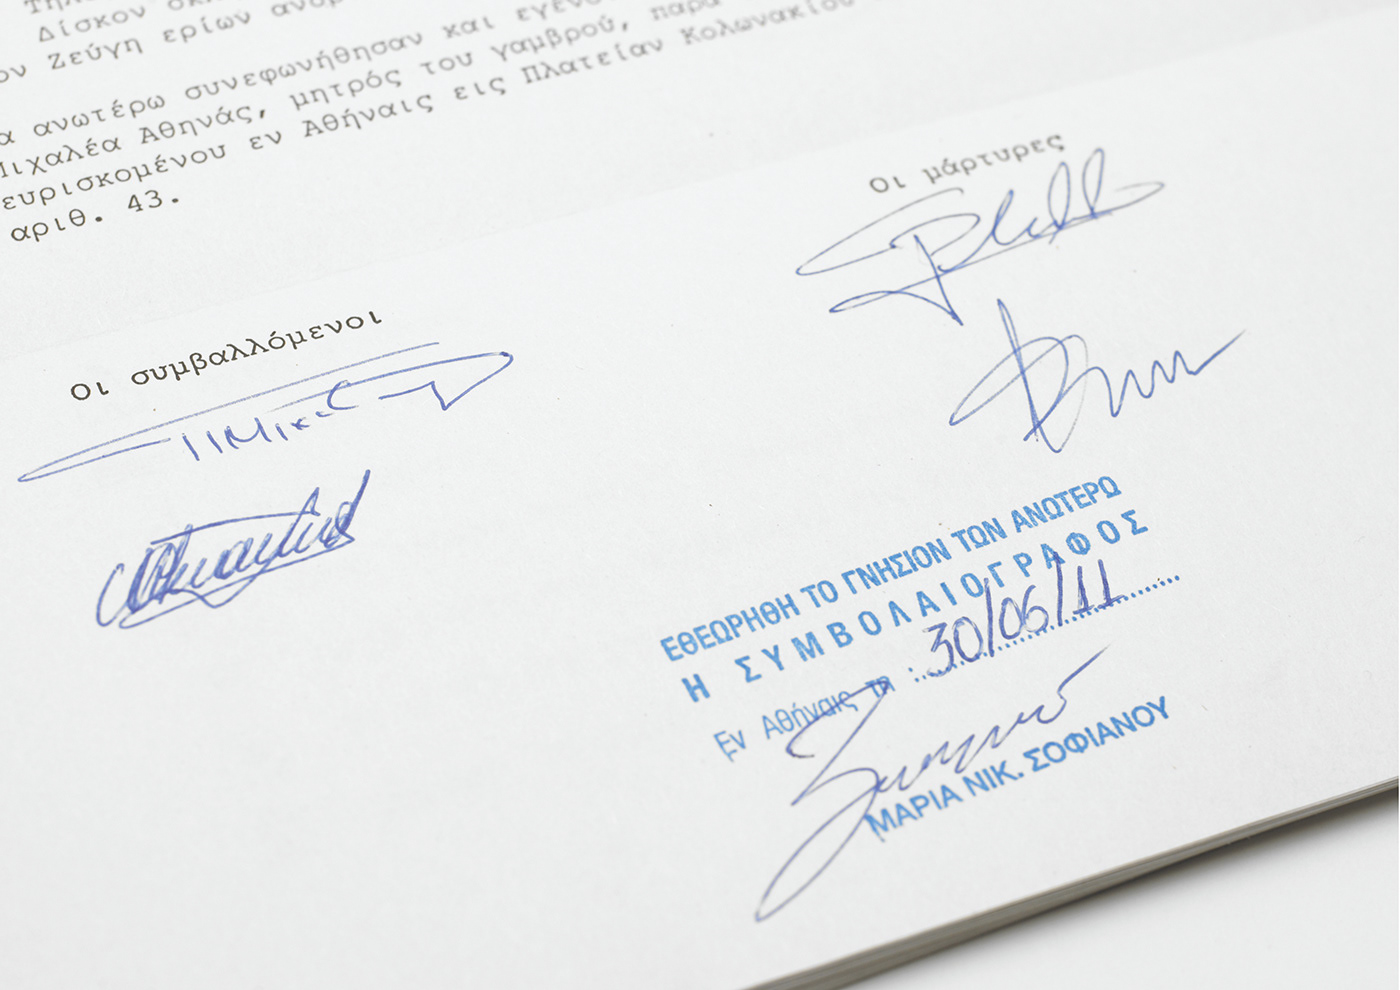 Δίσκον
Ζεύγη ερίων
ανωτέρω συνεφωνήθησαν και
Μιχαλέα Αθηνάς, μητρός του γαμβρού, παρά
ευρισκομένου εν Αθήναις εις Πλατείαν Κολωνακίου
αριθ. 43.
Οι μάρτυρες
Οι συμβαλλόμενοι
ΕΘΕΩΡΗΘΗ ΤΟ ΓΝΗΣΙΟΝ ΤΩΝ ΑΝΩΤΕΡΩ
Η ΣΥΜΒΟΛΑΙΟΓΡΑΦΟΣ
Εν Αθήναις τη : 30/06/11
ΜΑΡΙΑ ΝΙΚ. ΣΟΦΙΑΝΟΥ